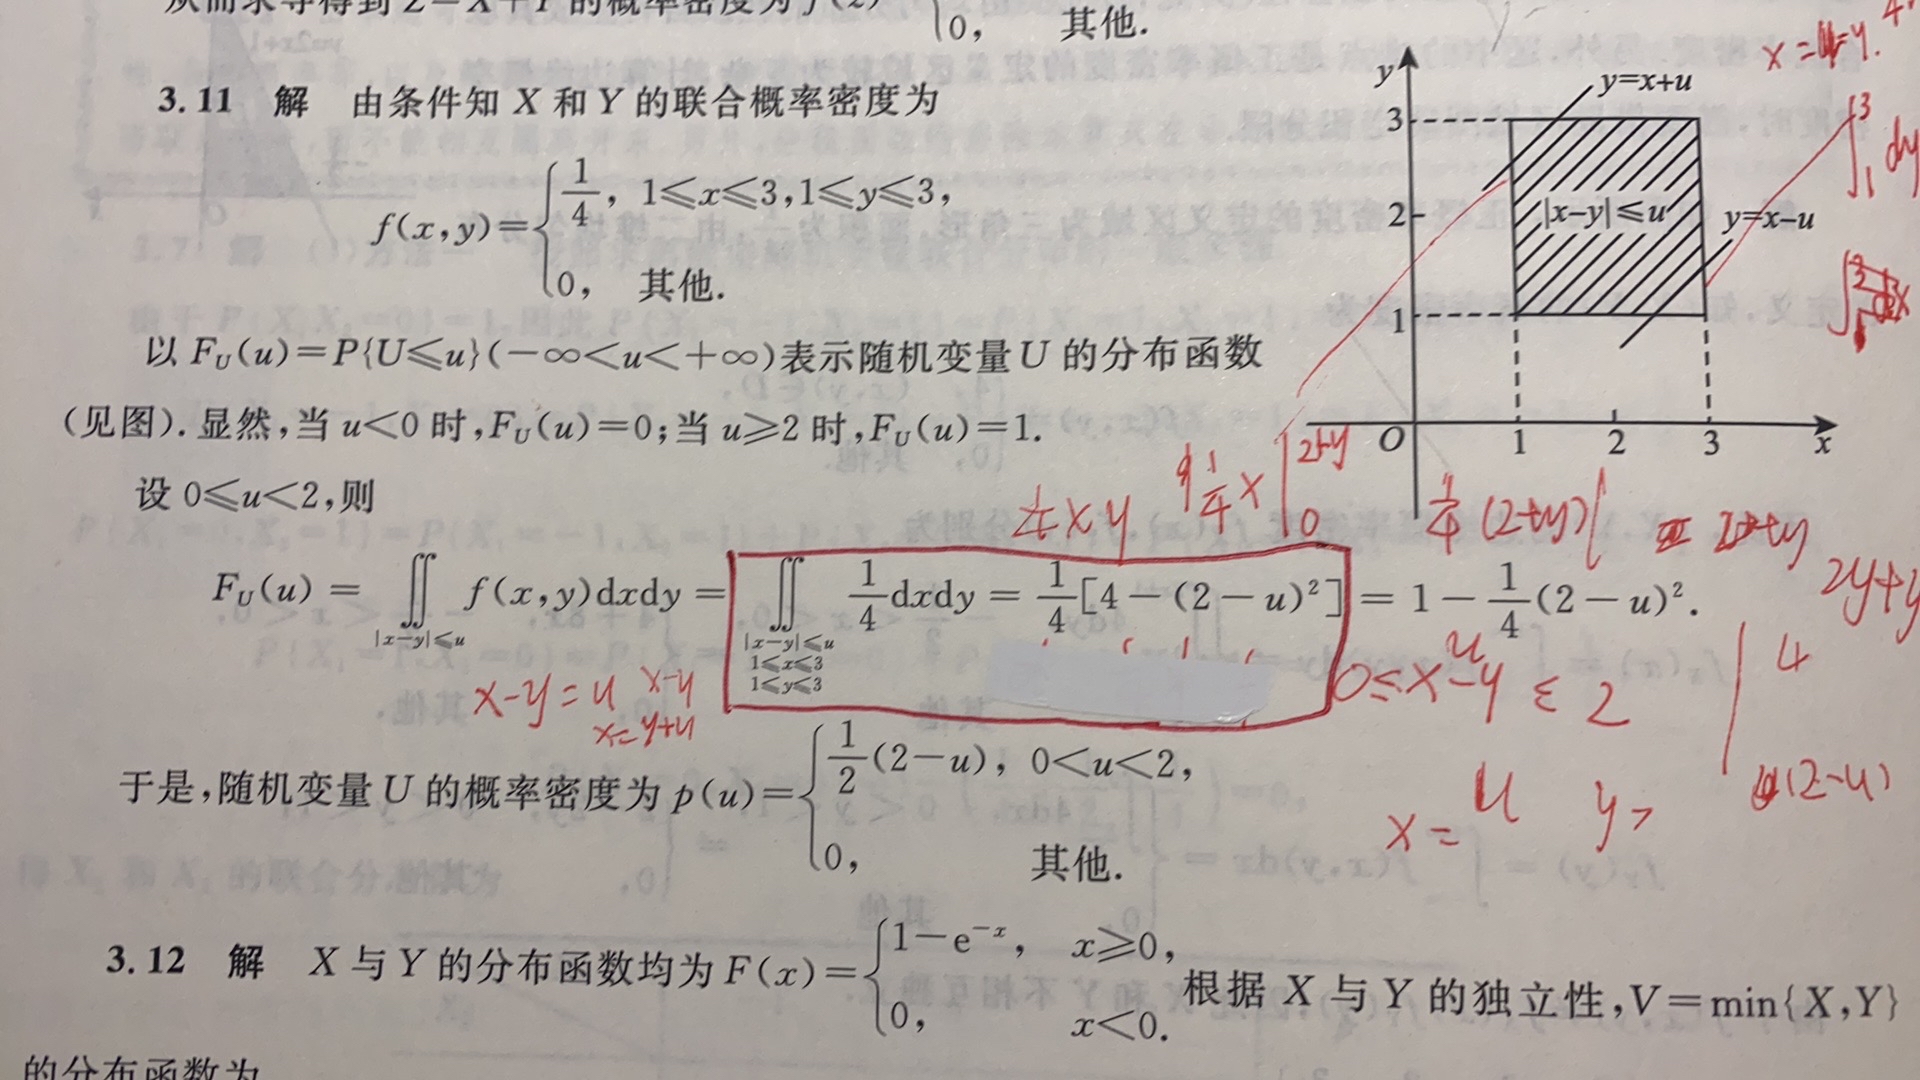 从而求导得到 Z=X+Y 的概率密度为 f(z)
0, 其他.
3.11 解 由条件知 X 和 Y 的联合概率密度为
f(x,y)={1/4, 1≤x≤3,1≤y≤3,
0, 其他.
以 F_U(u)=P{U≤u}(-∞<u<+∞)表示随机变量 U 的分布函数
(见图).显然,当 u<0 时,F_U(u)=0;当 u≥2 时,F_U(u)=1.
设 0≤u<2,则
F_U(u) = ∬_{|x-y|≤u} f(x,y)dxdy = ∬_{|x-y|≤u, 1≤x≤3, 1≤y≤3} 1/4 dxdy = 1/4[4-(2-u)²] = 1-1/4(2-u)².
于是,随机变量 U 的概率密度为 p(u)={1/2(2-u), 0<u<2,
0, 其他.
3.12 解 X 与 Y 的分布函数均为 F(x)={1-e^{-x}, x≥0,
0, x<0.
根据 X 与 Y 的独立性,V=min{X,Y}
的分布函数为
y
y=x+u
3
2
|x-y|≤u
y=x-u
1
O
1
2
3
x
∫₁³ dy
1/4 x | 2+y
0
1/4 (2+y)
x-y=u
x-y
x=y+u
0≤x-y≤2
u
4
x=
u
y=
(2-u)
2y+y